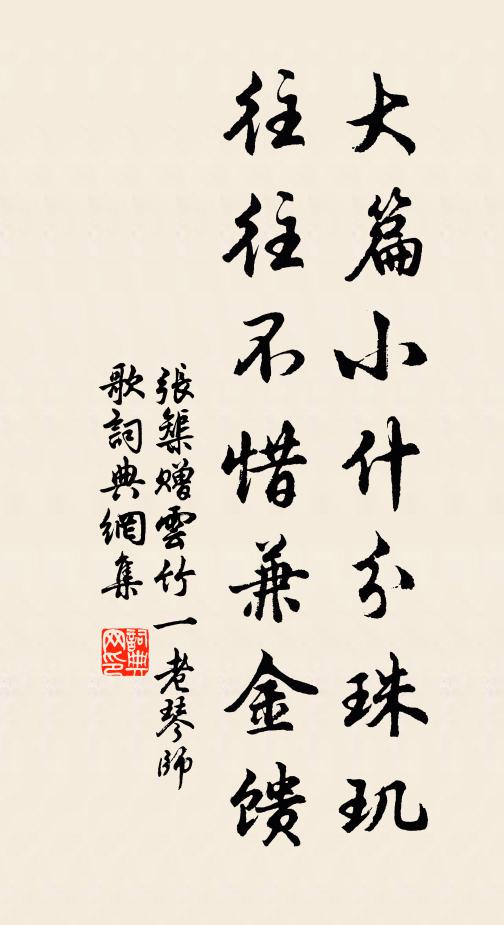 大篇小什分珠玑
往往不惜兼金馈
張榘贈雲竹一老琴師
歌詞典網集
詞典网印